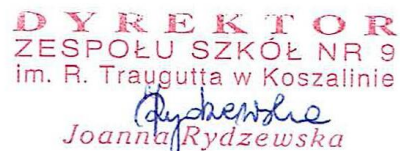 DYREKTOR
ZESPOŁU SZKÓŁ NR 9
im. R. Traugutta w Koszalinie
Rydzewska
Joanna Rydzewska